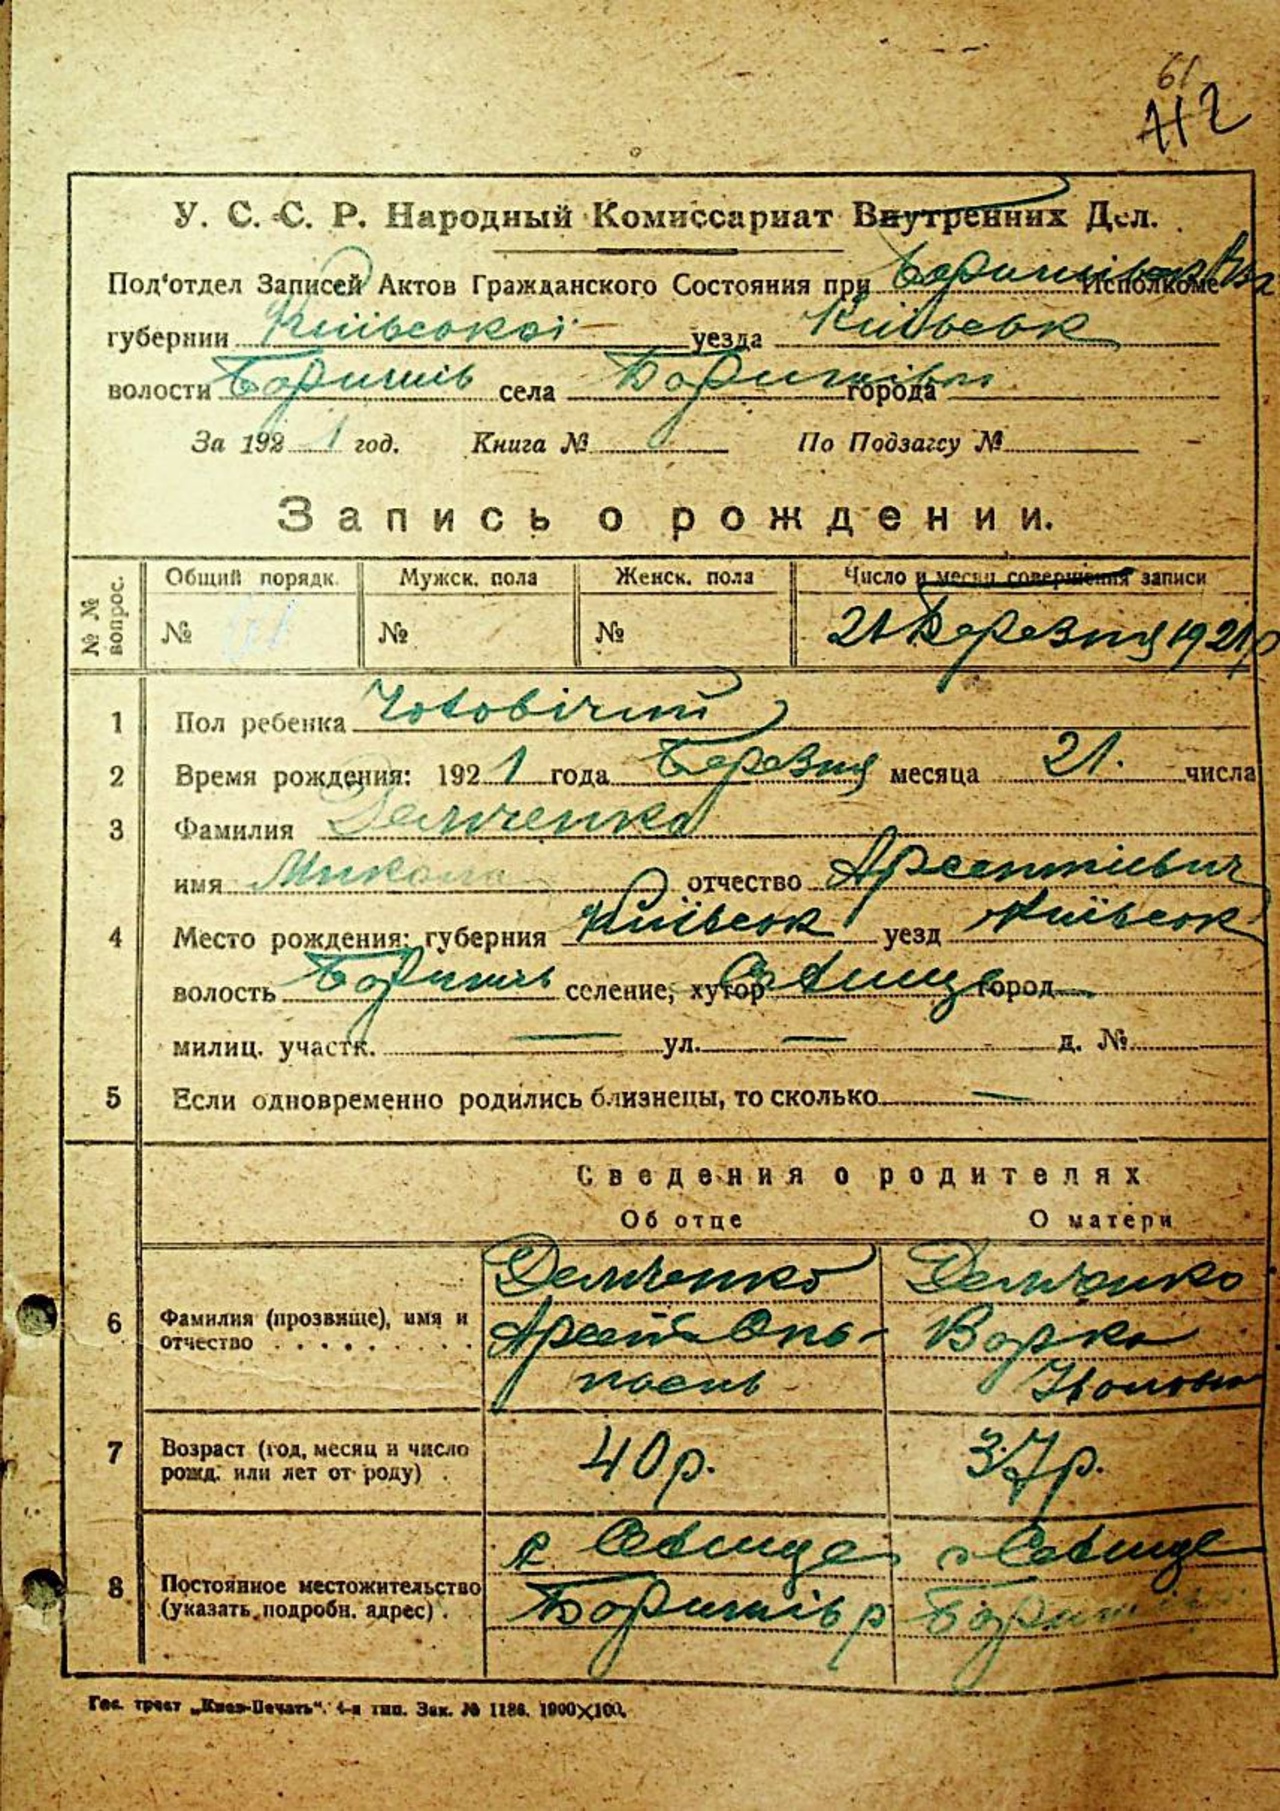 61
412
У. С. С. Р. Народный Комиссариат Внутренних Дел.
Под'отдел Записей Актов Гражданского Состояния при Исполкоме
губернии Київської уезда Київськ
волости Баришів села Баришівп города
За 1921 год. Книга № По Подзагсу №
Запись о рождении.
№ № вопрос. Общий порядк. Мужск. пола Женск. пола Число и месяц совершения записи
№ № № 21 Березня 1921 р
1 Пол ребенка Чоловічий
2 Время рождения: 1921 года Березня месяца 21. числа
3 Фамилия Демченко
имя Микола отчество Арсентієвич
4 Место рождения: губерния Київськ уезд Київськ
волость Баришів селение, хутор Селище город —
милиц. участк. — ул. — д. №
5 Если одновременно родились близнецы, то сколько —
Сведения о родителях
Об отце О матери
Демченко Демченко
6 Фамилия (прозвище), имя и отчество Варка
7 Возраст (год, месяц и число рожд. или лет от роду) 40 р. 37 р.
с Селище с Селище
8 Постоянное местожительство (указать подробн. адрес) Баришів р Баришів
Гос. трест „Киев-Печать“. 4-я тип. Зак. № 1186. 1900×100.